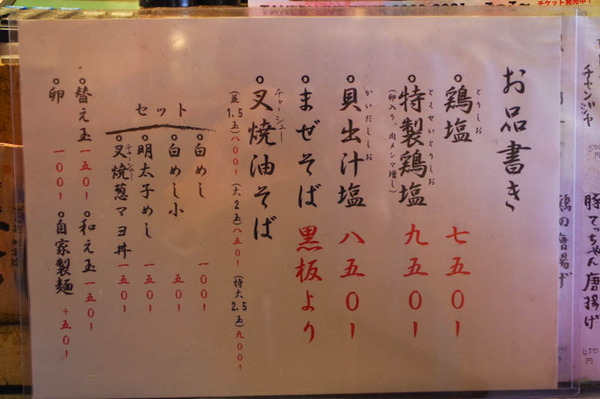 お品書き
鶏塩 七五〇ー
とりしお
特製鶏塩 九五〇ー
とくせいとりしお
(卵入り、肉メンマ増し)
貝出汁塩 八五〇ー
かいだししお
まぜそば 黒板より
叉焼油そば
チャーシュー
(並1.5玉)八〇〇ー (大2玉)八五〇ー (特大2.5玉)九〇〇ー
セット
白めし 一〇〇ー
白めし小 五〇ー
明太子めし 一五〇ー
叉焼葱マヨ丼 一五〇ー
チャーシュー
替え玉 一五〇ー
和え玉 一五〇ー
卵 一〇〇ー
自家製麺 +五〇ー
チャンジャ
豚てっちゃん唐揚げ
鶏の唐揚げ
450円